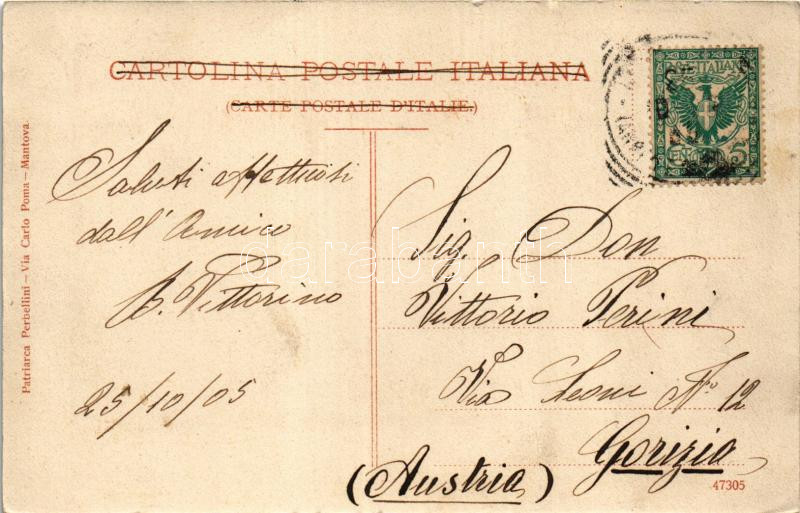 CARTOLINA POSTALE ITALIANA
(CARTE POSTALE D'ITALIE.)
Saluti affettuosi
dall'Amico
B. Vittorino
25/10/05
Sig. Don
Vittorio Perini
Via Leoni No 12
Gorizia
(Austria)
47305
Patriarca Perbellini – Via Carlo Poma – Mantova.
POSTE ITALIANE
5
darabanth